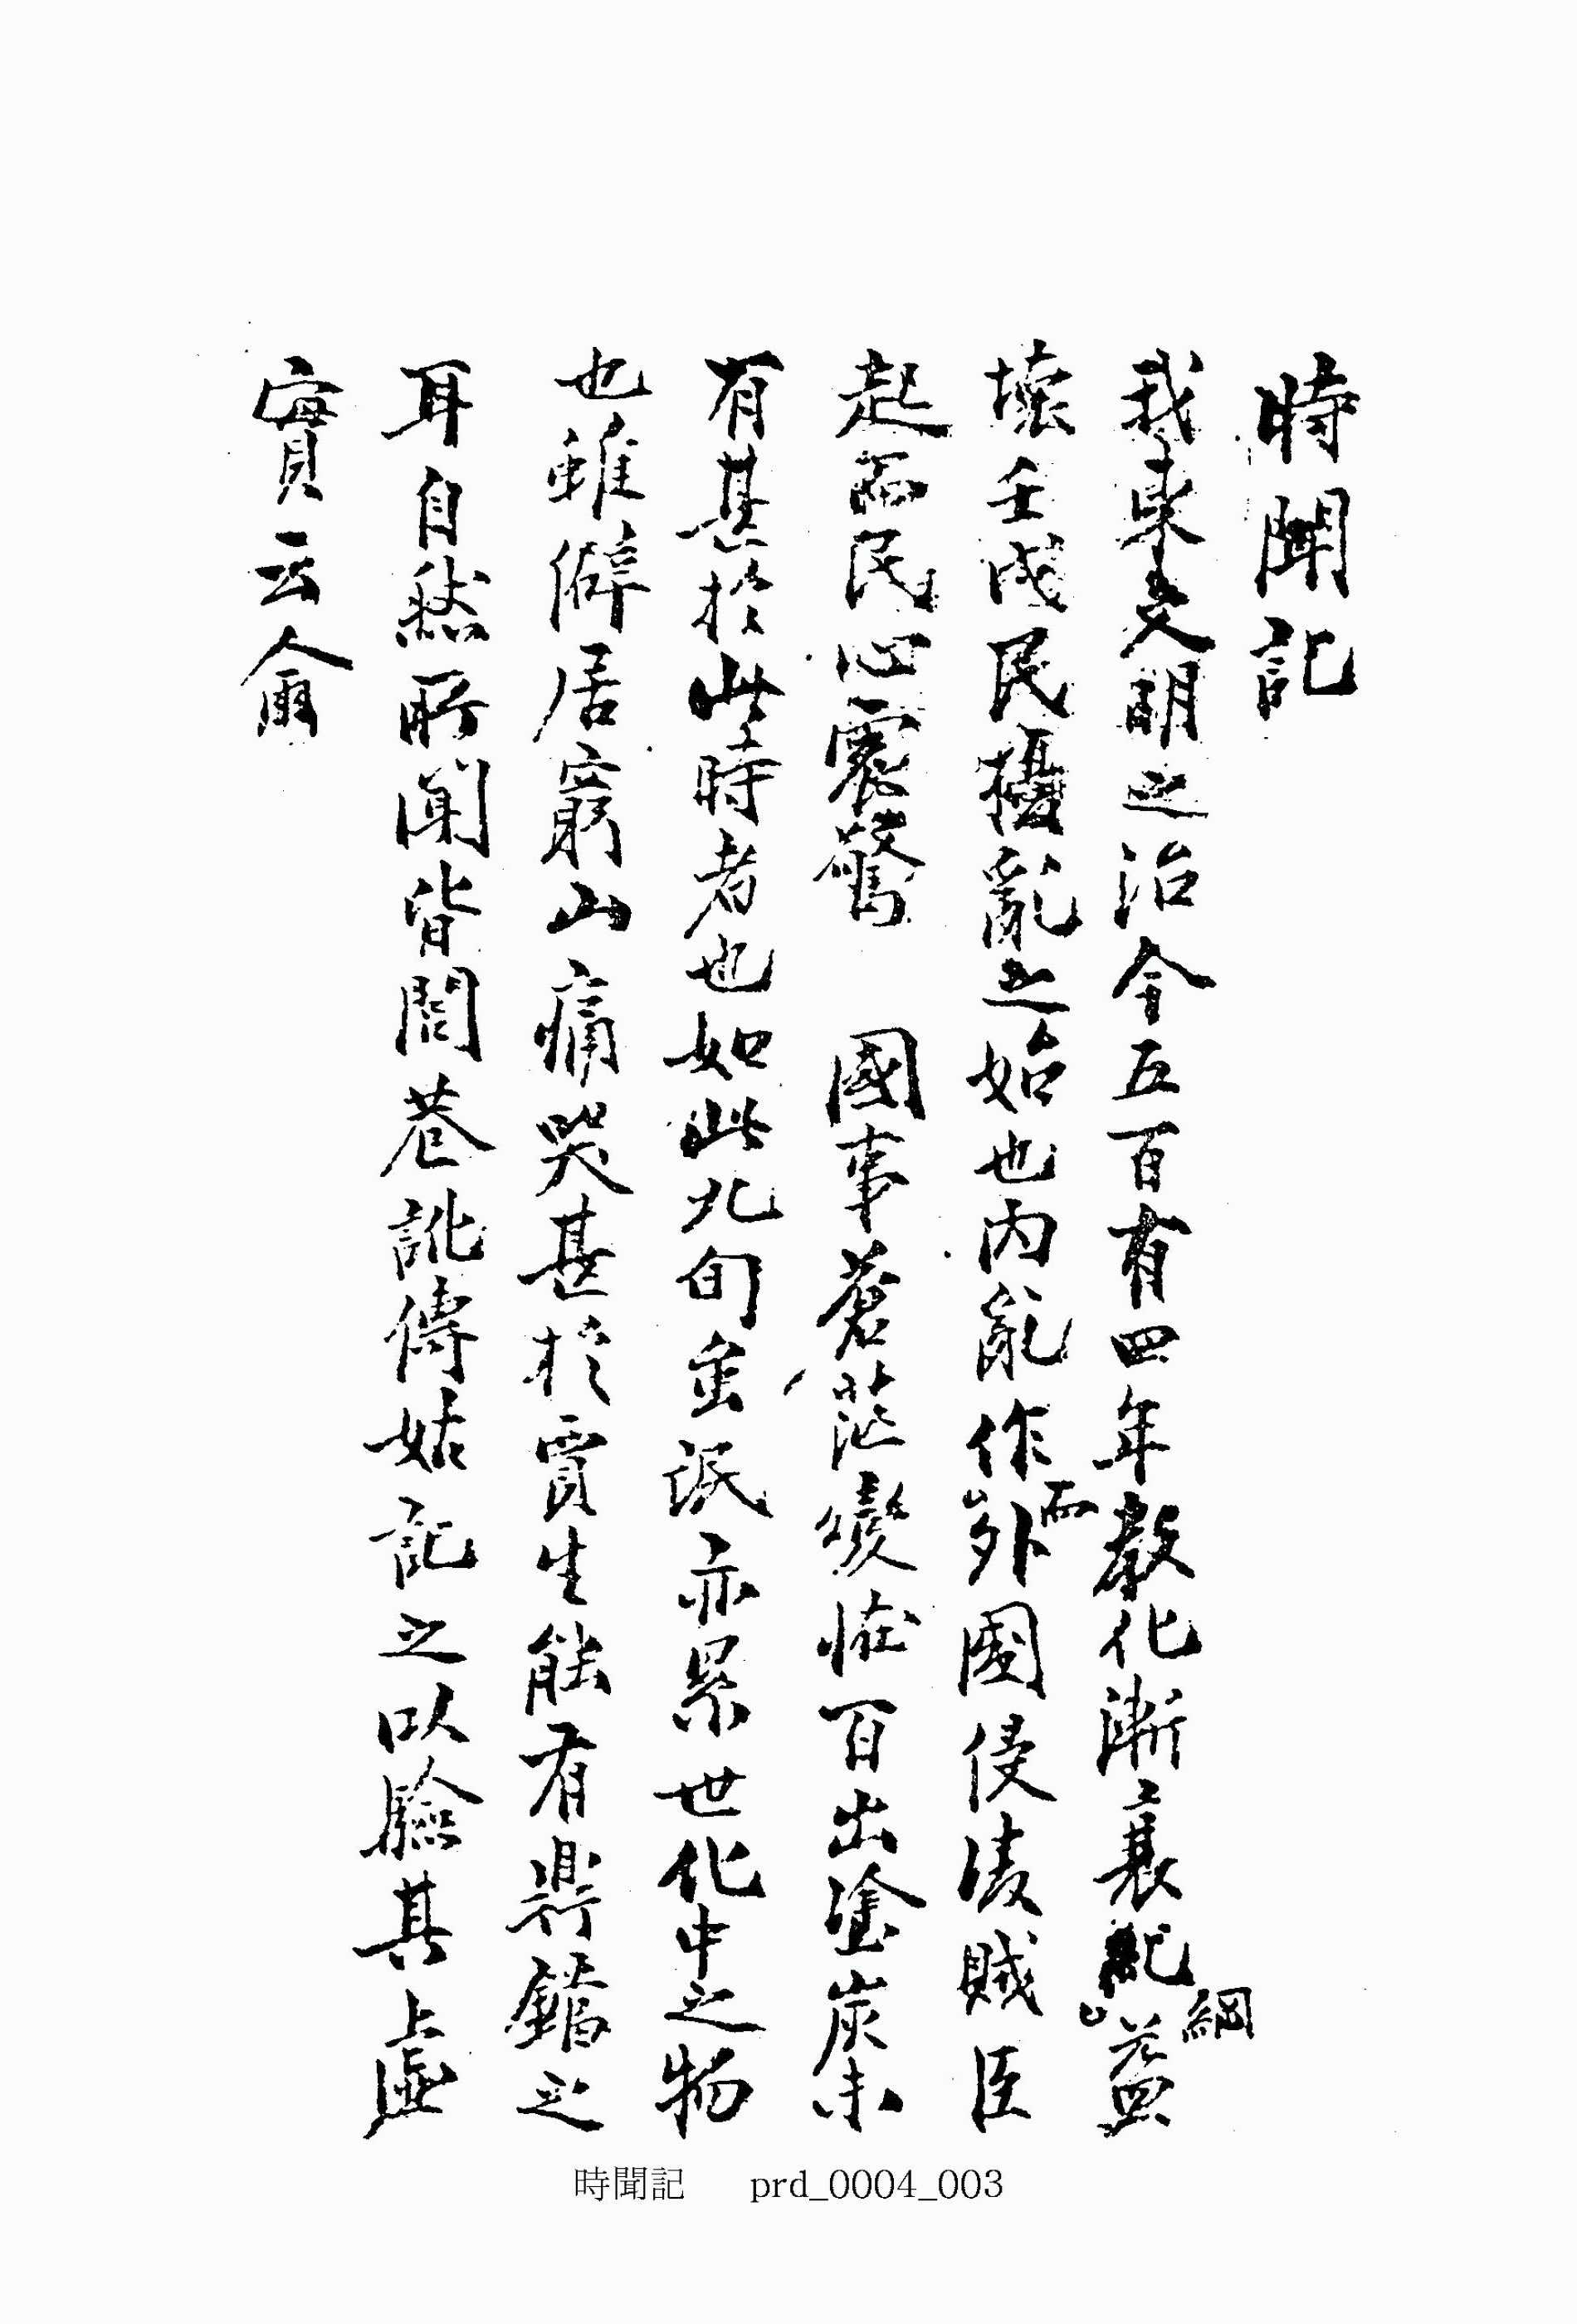 時聞記
我東文明之治今五百有四年敎化漸衰紀綱益
壞壬戌民擾亂之始也內亂作而外國侵凌賊臣
起而民心震驚 國事蒼茫變怪百出塗炭未
有甚於此時者也如此九旬蚩氓亦累世化中之物
也雖僻居窮山痛哭甚於賈生能有鼎鐺之
耳自然所聞皆閭巷訛傳姑記之以驗其虛
實云爾
時聞記 prd_0004_003